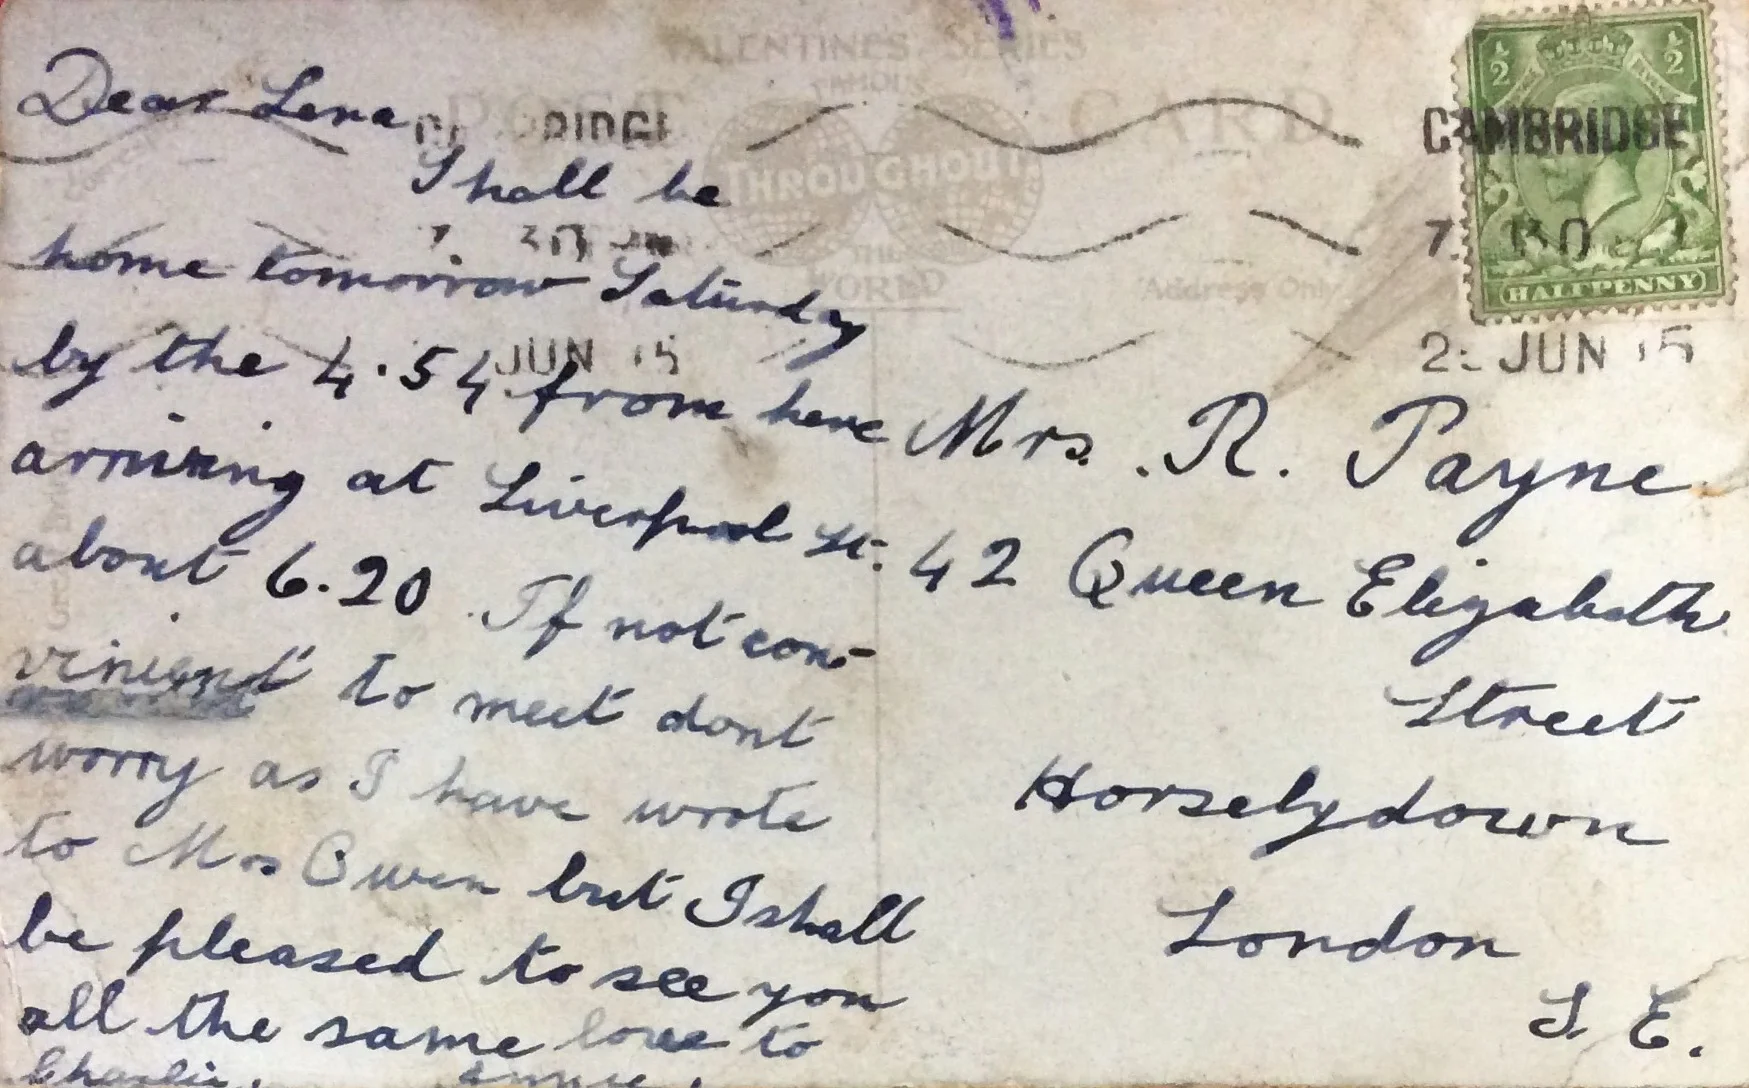 VALENTINE'S SERIES
FAMOUS
THROUGHOUT
THE
WORLD
POST CARD
Address Only
CAMBRIDGE
7. 30
JUN 15
CAMBRIDGE
7. 30
JUN 15
½ ½
HALFPENNY
Dear Lena
I shall be
home tomorrow Saturday
by the 4.54 from here
arriving at Liverpool St.
about 6.20. If not con-
vinient to meet dont
worry as I have wrote
to Mrs Owen but I shall
be pleased to see you
all the same love to
Charlie. Annie.
Mrs. R. Payne
42 Queen Elizabeth
Street
Horselydown
London
S. E.